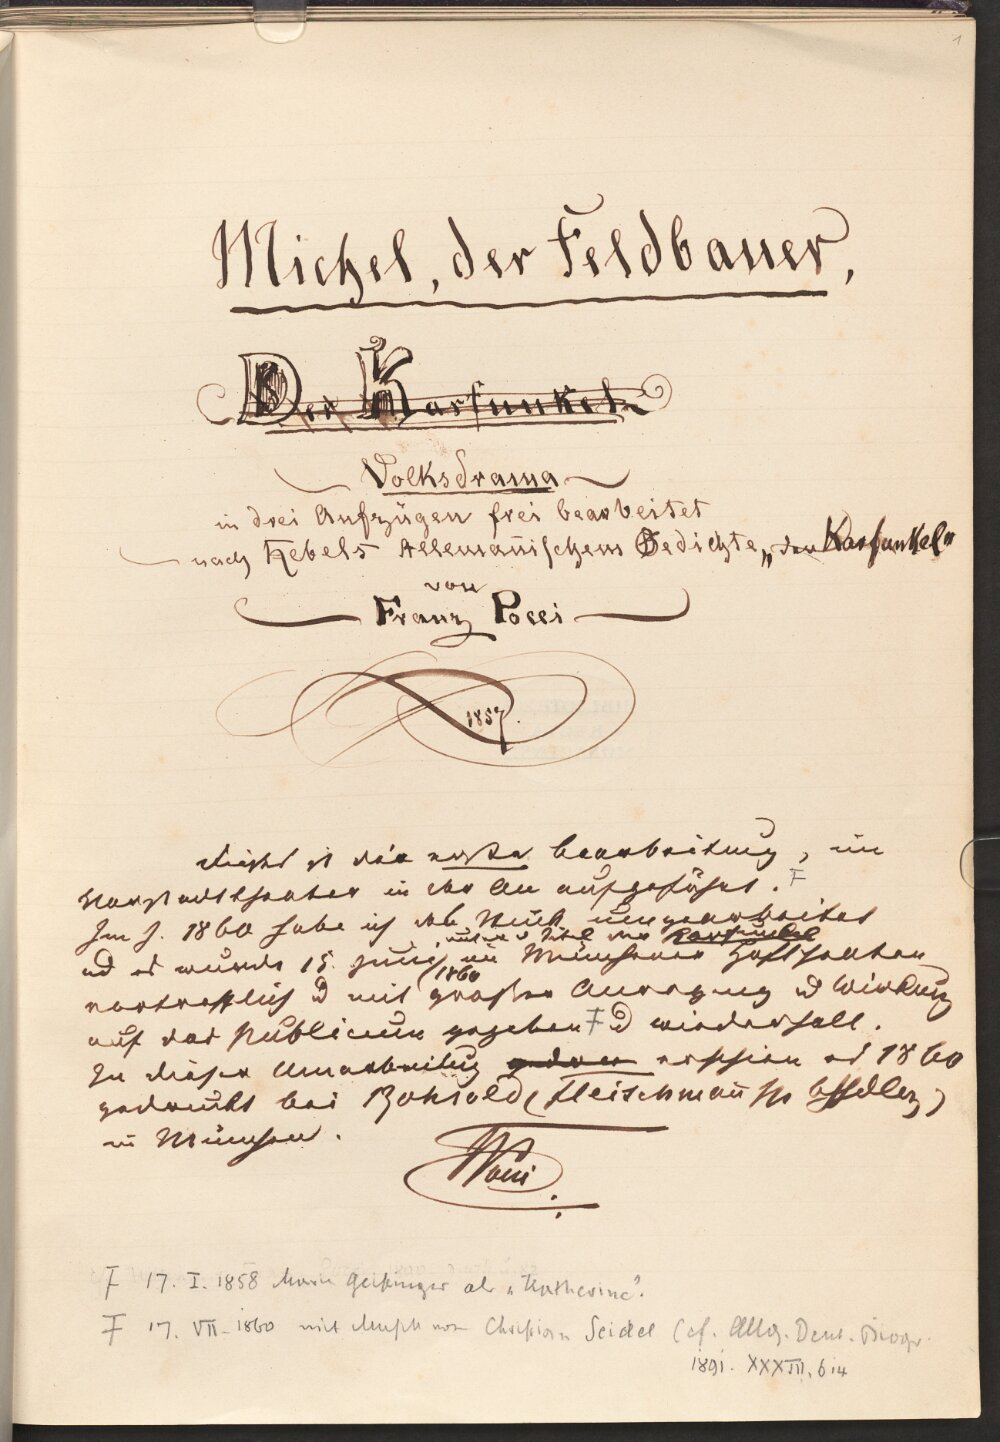 1
Michel, der Feldbauer,
Der Karfunkel
Volksdrama
in drei Aufzügen frei bearbeitet
nach Hebels Allemañischem Gedichte „der Karfunkel“
von
Franz Pocci
1857.
Dieses ist die erste Bearbeitung, im
Vorstadttheater in der Au aufgeführt. F
Im J. 1860 habe ich das Stück umgearbeitet
unter d Titel der Karfunkel
und es wurde 15. Juni im Münchener Hoftheater
1860
vortrefflich und mit großer Anregung und Wirkung
auf das Publicum gegeben F und wiederholt.
In dieser Umarbeitung erschien es 1860
gedruckt bei (Fleischmañ
in München.
Pocci
F 17. I. 1858 Marie Geistinger als „Katherine“.
F 17. VII. 1860 mit Musik von Christian Seidel (cf. Allg. Deut. Biogr.
1891. XXXIII, 614